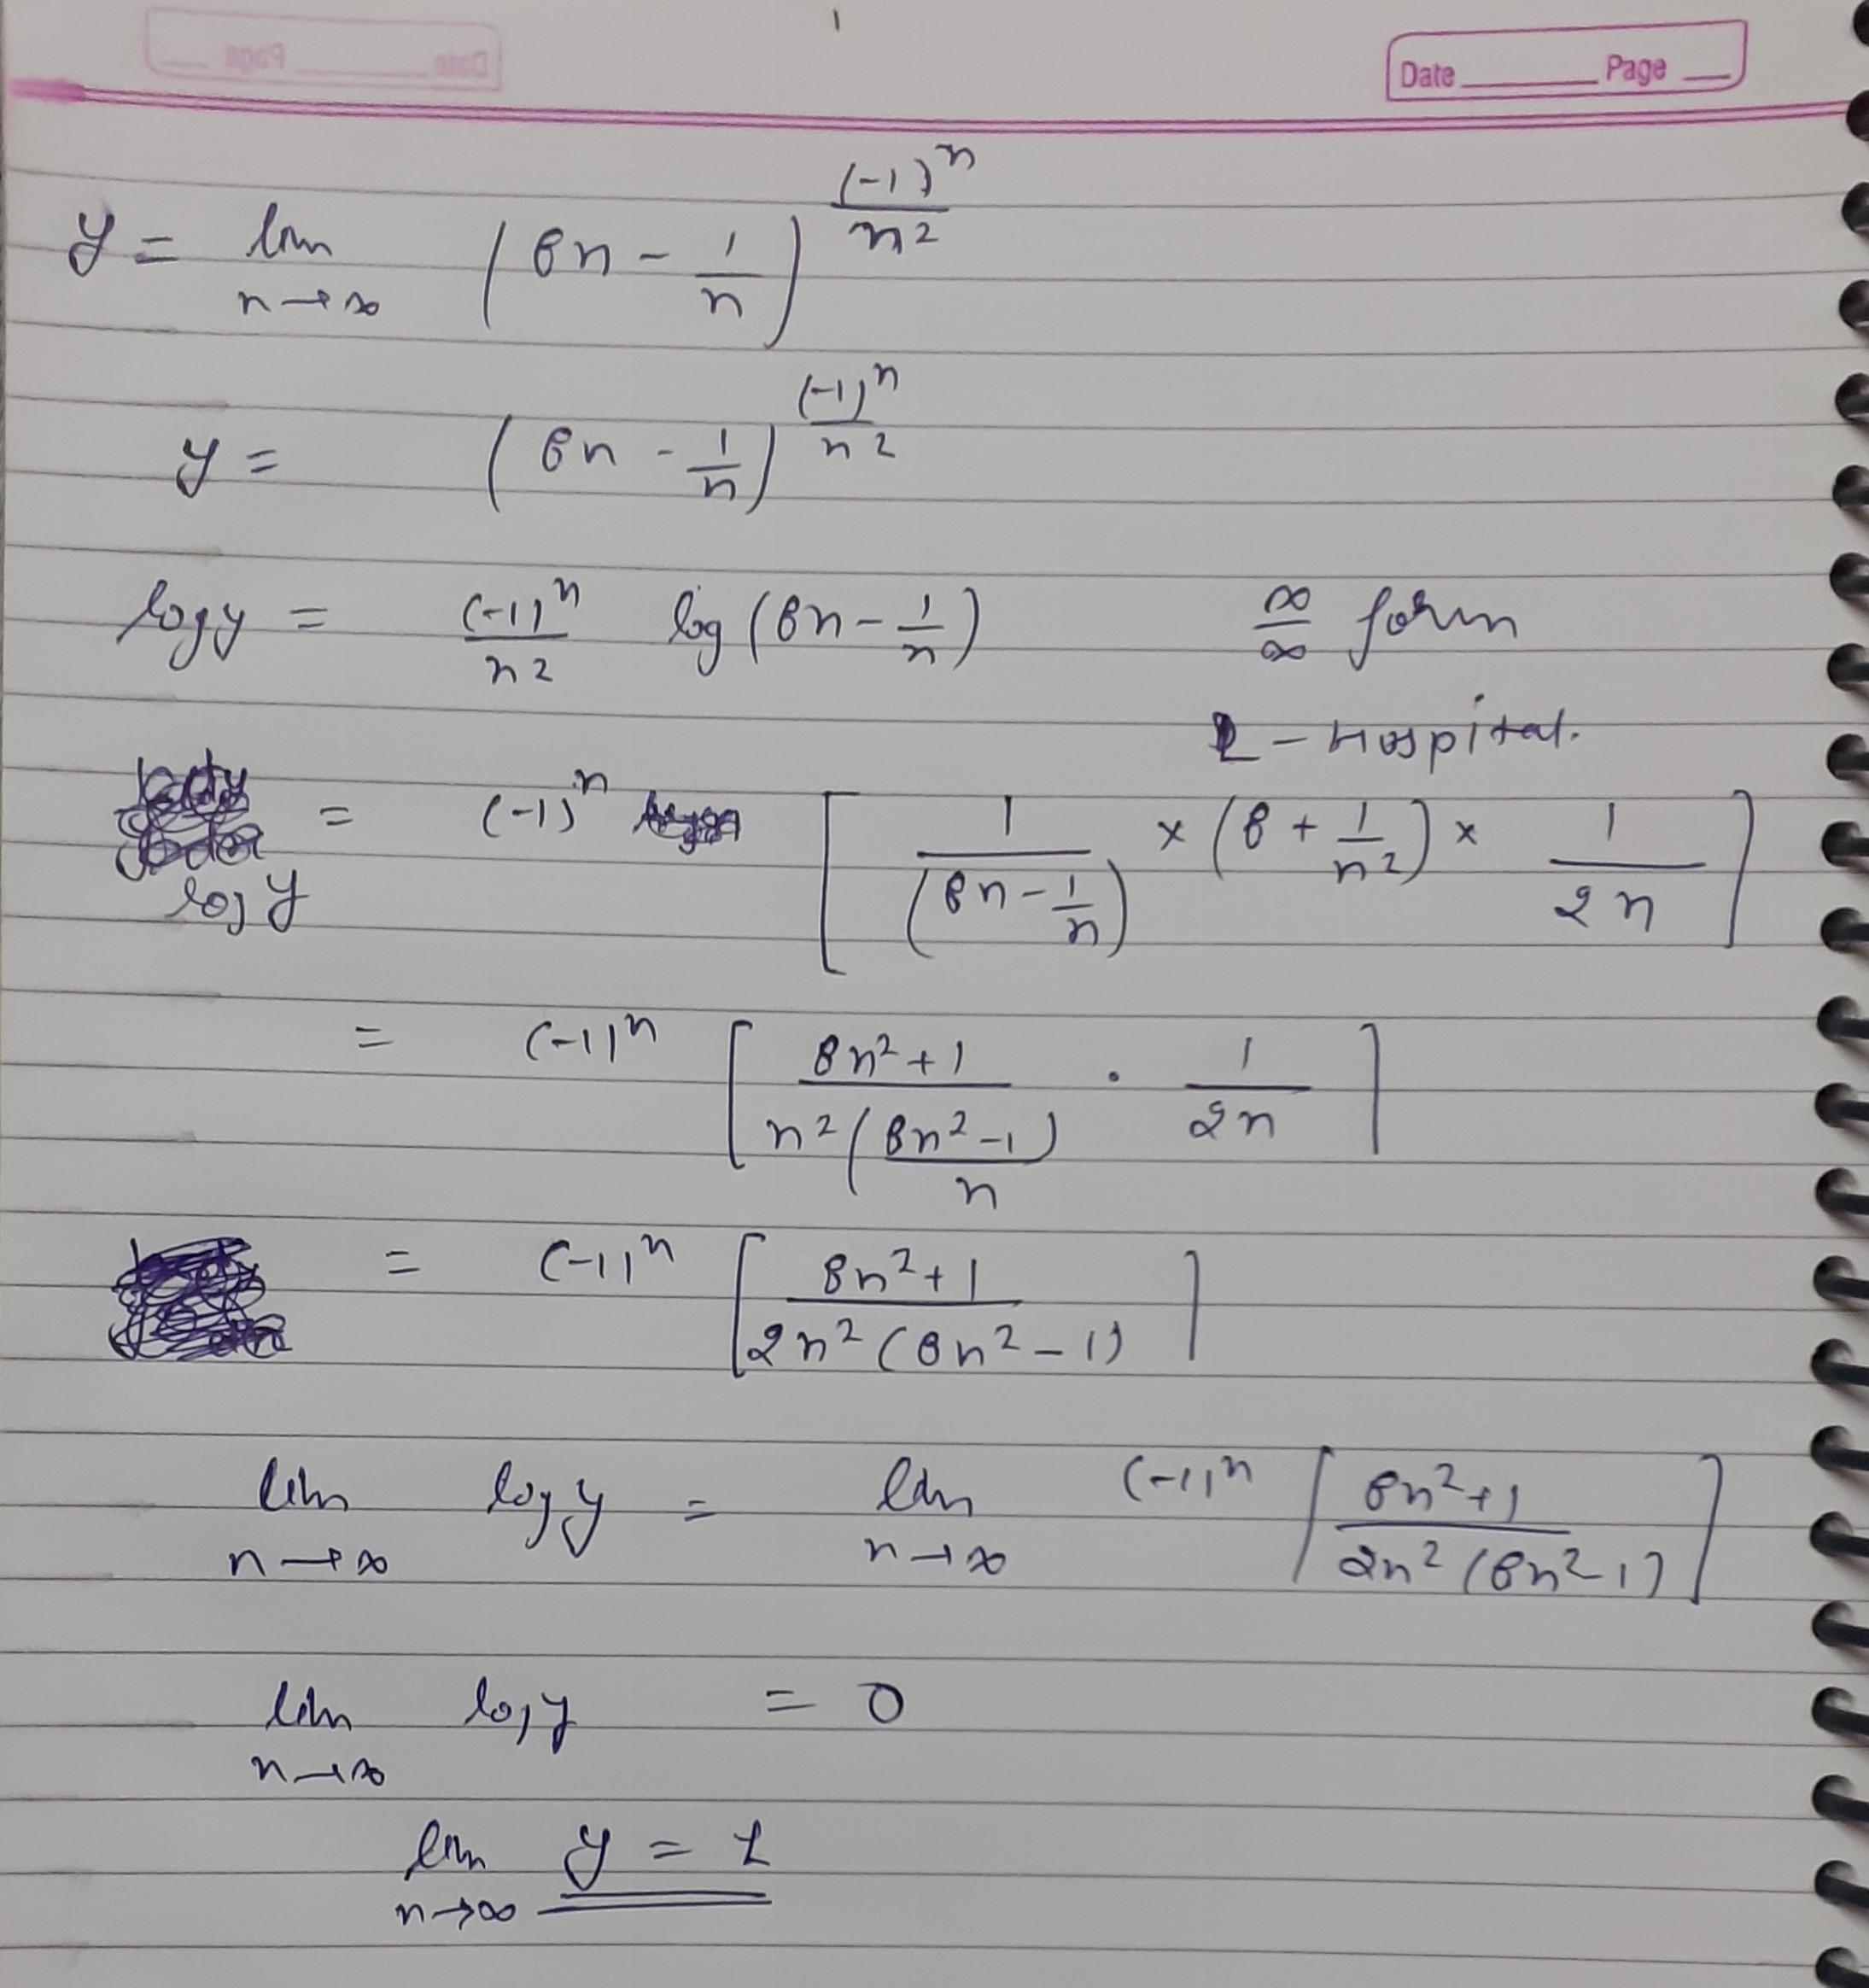 Date Page
y = lim n→∞ (8n - 1/n)^((-1)^n/n2)
y = (8n - 1/n)^((-1)^n/n2)
log y = (-1)^n/n2 log (8n - 1/n) ∞/∞ form
L - Hospital.
log y = (-1)^n [1/(8n - 1/n) × (8 + 1/n2) × 1/2n]
= (-1)^n [8n²+1/n²(8n²-1/n) · 1/2n]
= (-1)^n [8n²+1/2n²(8n²-1)]
lim n→∞ log y = lim n→∞ (-1)^n [8n²+1/2n²(8n²-1)]
lim n→∞ log y = 0
lim n→∞ y = 1